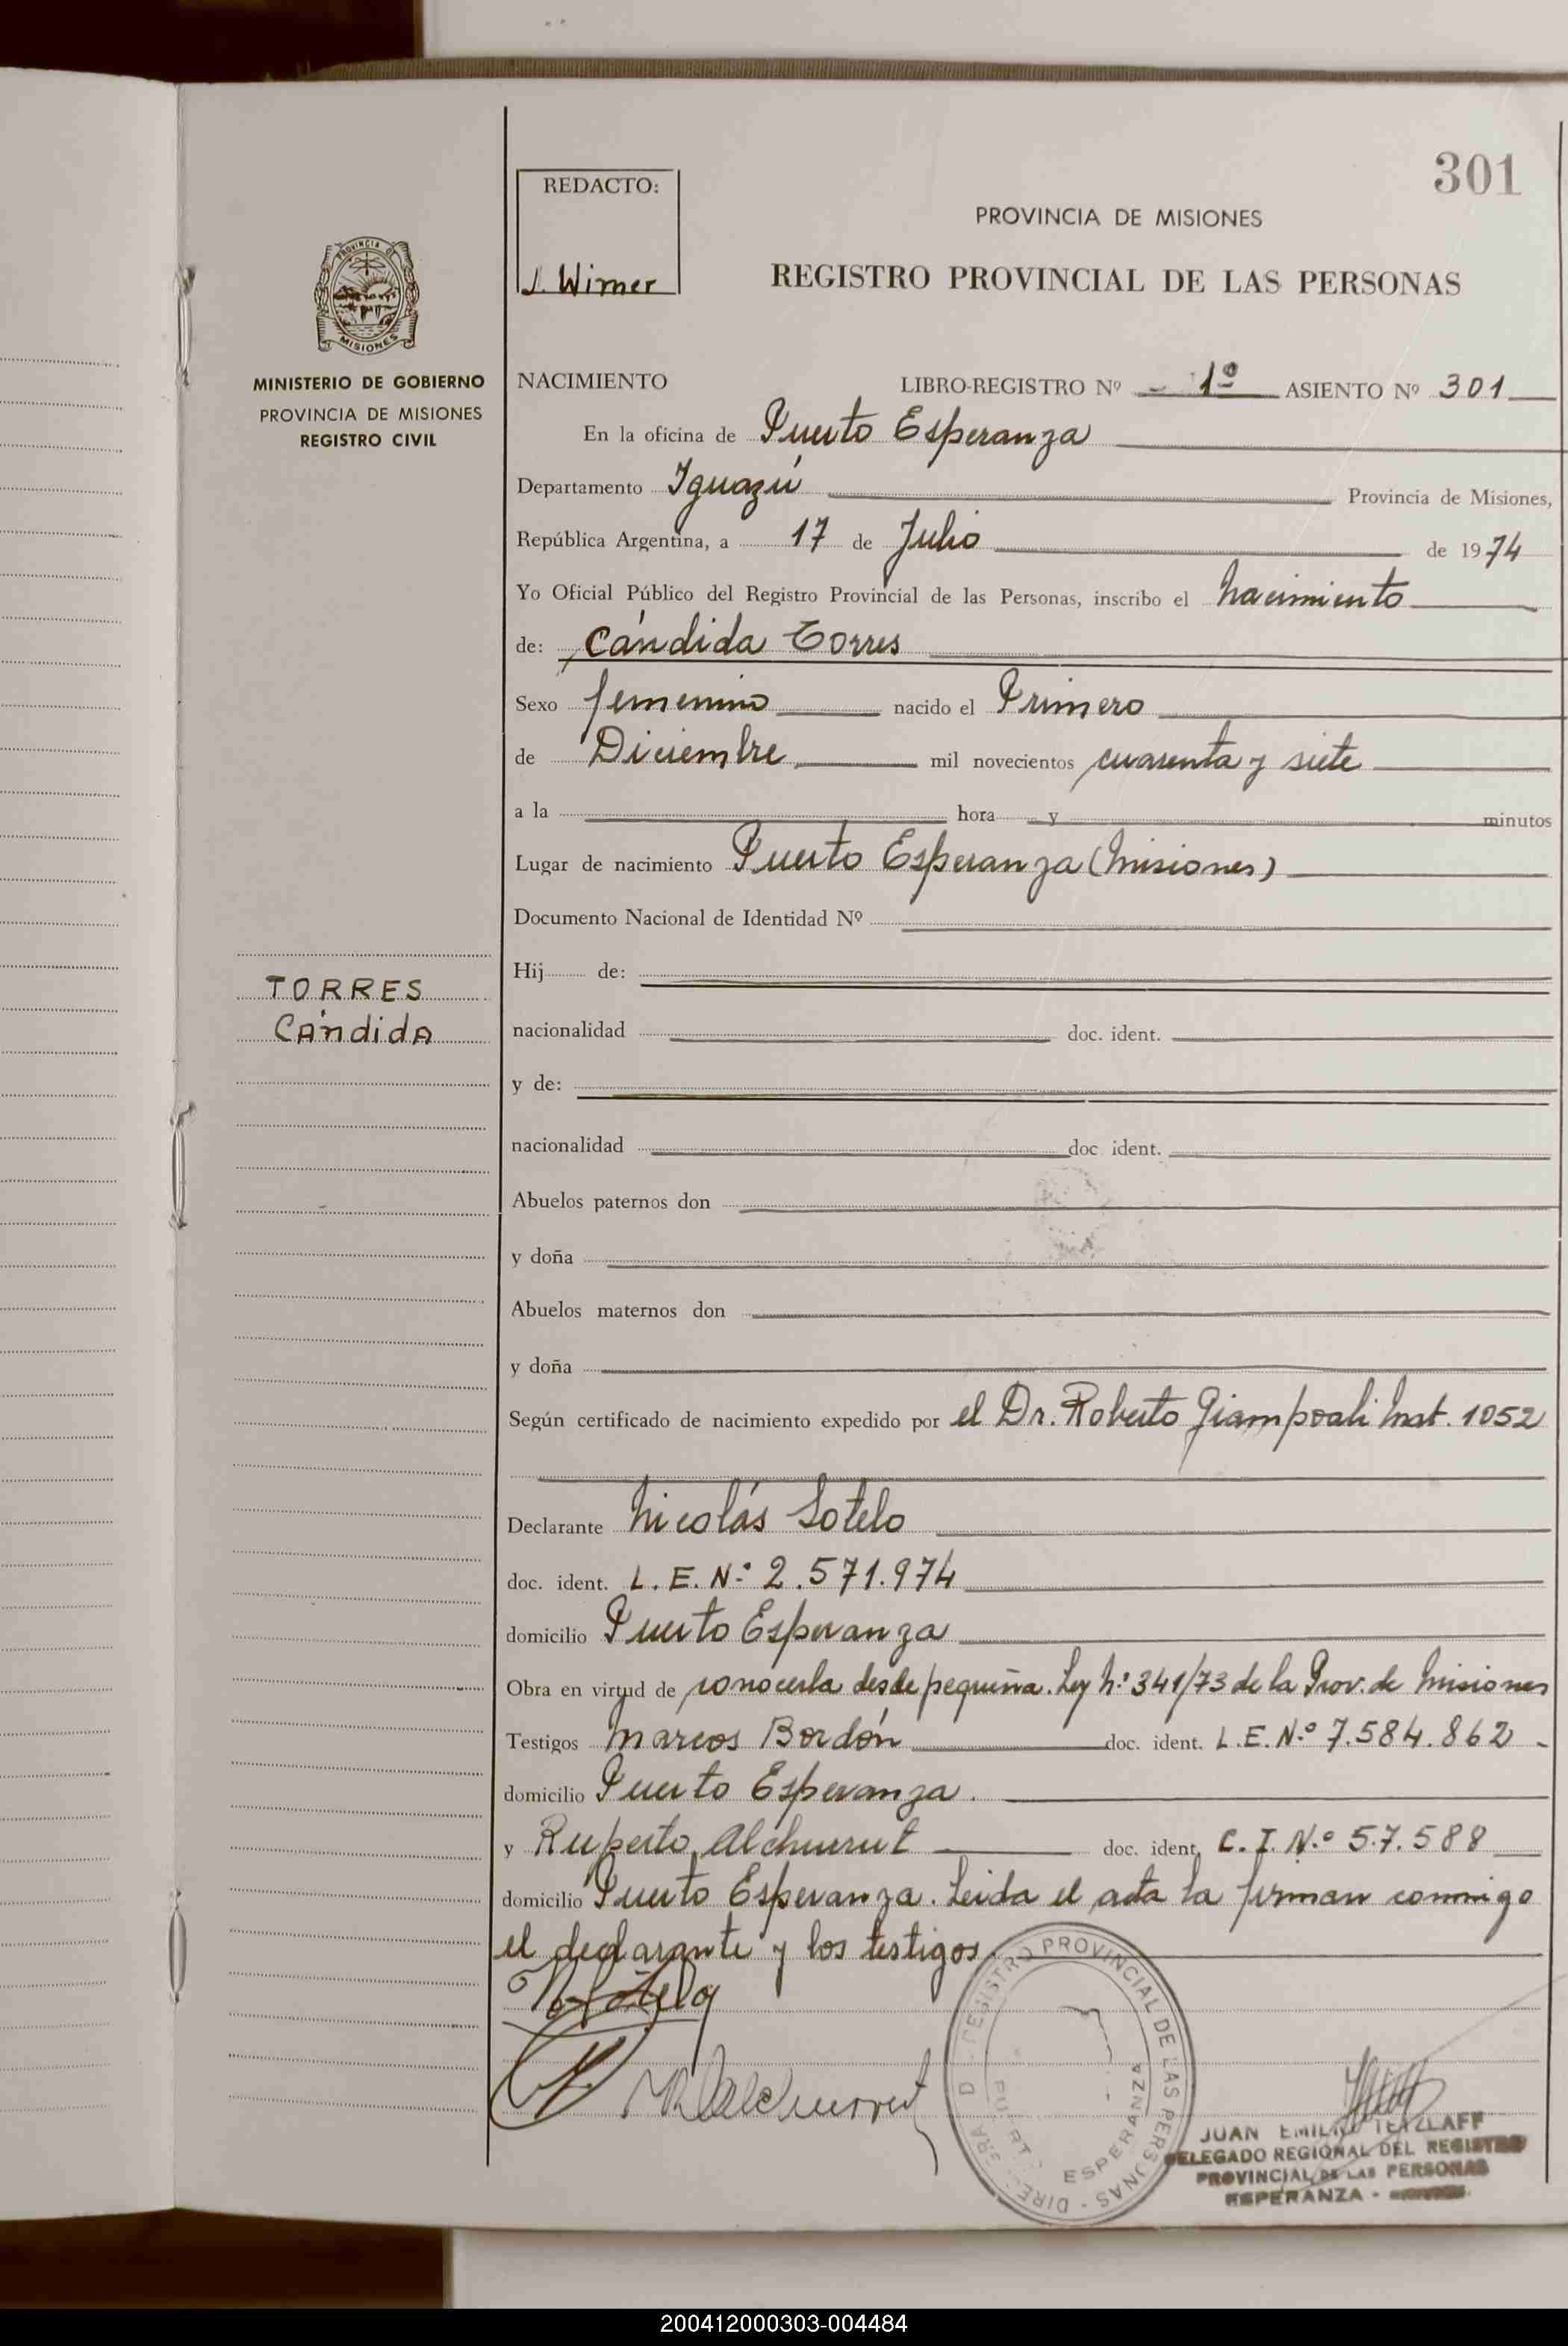 301
REDACTO:
J. Wimer
PROVINCIA DE MISIONES
REGISTRO PROVINCIAL DE LAS PERSONAS
PROVINCIA DE
MISIONES
MINISTERIO DE GOBIERNO
PROVINCIA DE MISIONES
REGISTRO CIVIL
NACIMIENTO LIBRO-REGISTRO Nº 1º ASIENTO Nº 301
En la oficina de Puerto Esperanza
Departamento Iguazú Provincia de Misiones,
República Argentina, a 17 de Julio de 1974
Yo Oficial Público del Registro Provincial de las Personas, inscribo el nacimiento
de: Cándida Torres
Sexo femenino nacido el Primero
de Diciembre mil novecientos cuarenta y siete
a la hora y minutos
Lugar de nacimiento Puerto Esperanza (Misiones)
Documento Nacional de Identidad Nº
Hij de:
TORRES
Cándida
nacionalidad doc. ident.
y de:
nacionalidad doc ident.
Abuelos paternos don
y doña
Abuelos maternos don
y doña
Según certificado de nacimiento expedido por el Dr. Roberto Giampoali Mat. 1052
Declarante Nicolás Sotelo
doc. ident. L. E. Nº 2.571.974
domicilio Puerto Esperanza
Obra en virtud de conocerla desde pequeña. Ley Nº 341/73 de la Prov. de Misiones
Testigos Marcos Bordón doc. ident. L.E. Nº 7.584.862
domicilio Puerto Esperanza.
y Ruperto Alchurrut doc. ident. C. I. Nº 57.588
domicilio Puerto Esperanza. Leida el acta la firman conmigo
el declarante y los testigos
REGISTRO PROVINCIAL DE LAS PERSONAS
ESPERANZA
JUAN EMILIO TETZLAFF
DELEGADO REGIONAL DEL REGISTRO
PROVINCIAL DE LAS PERSONAS
ESPERANZA -
200412000303-004484